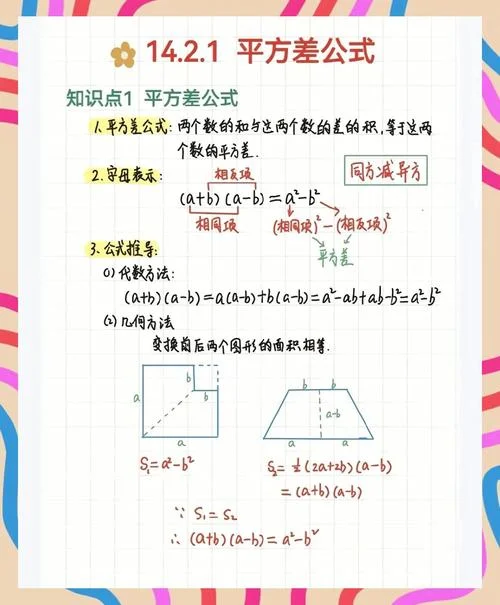 14.2.1 平方差公式
知识点1 平方差公式
1.平方差公式: 两个数的和与这两个数的差的积,等于这两
个数的平方差.
2.字母表示: 相反项 同方减异方
(a+b)(a-b)=a²-b²
相同项 (相同项)²-(相反项)²
平方差
3.公式推导:
(1)代数方法:
(a+b)(a-b)=a(a-b)+b(a-b)=a²-ab+ab-b²=a²-b²
(2)几何方法
变换前后两个图形的面积相等.
b b b
a b a-b
a a a
S₁=a²-b² S₂=½(2a+2b)(a-b)
=(a+b)(a-b)
∵ S₁=S₂
∴ (a+b)(a-b)=a²-b²